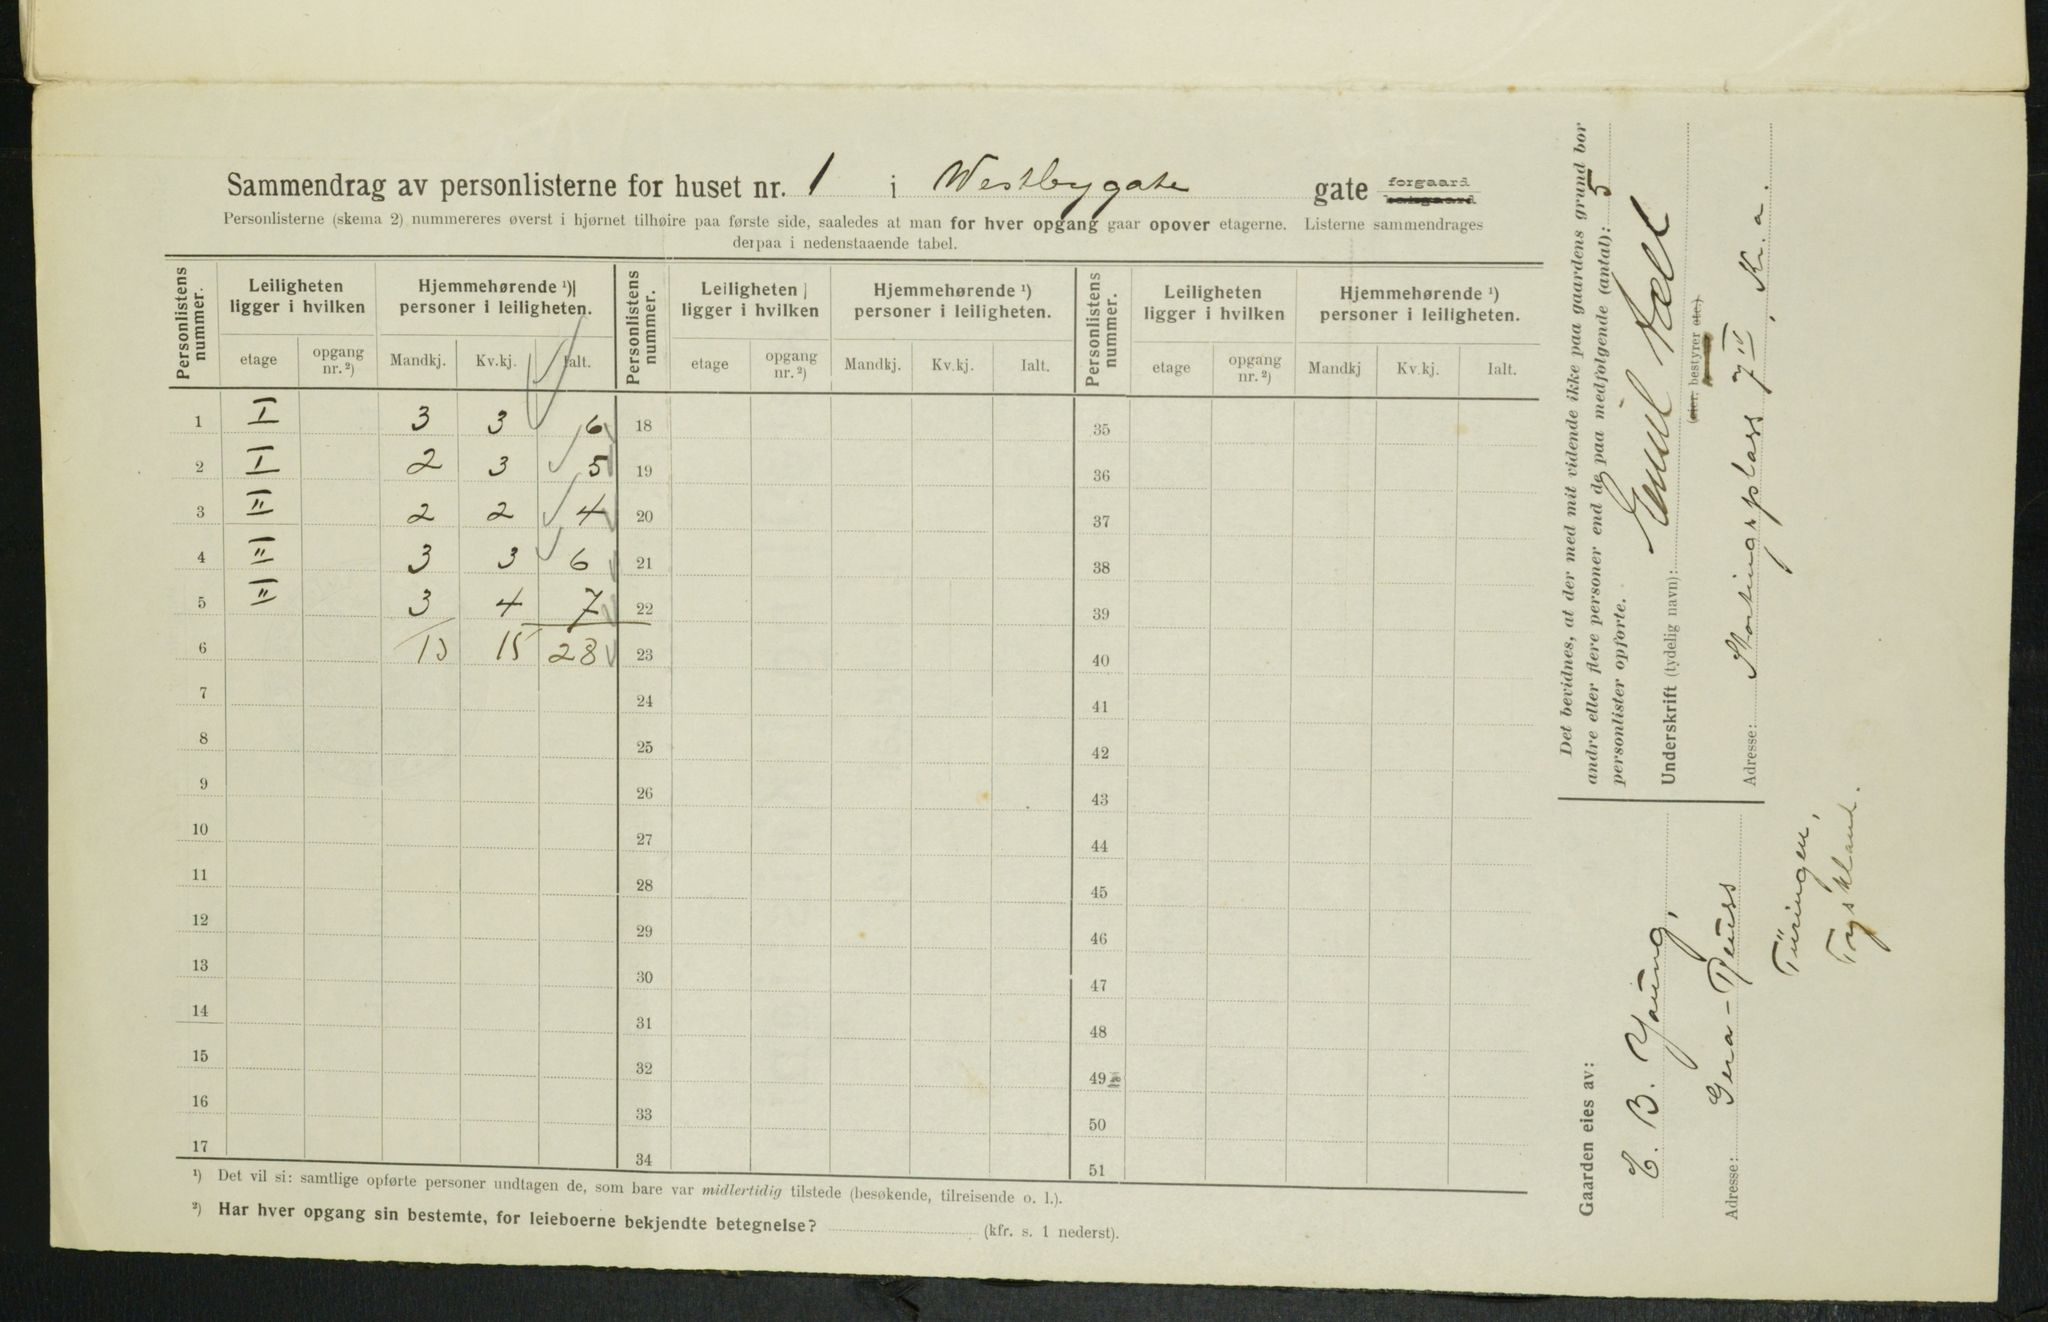 Sammendrag av personlisterne for huset nr. 1 i Westbygate gate forgaard bakgaard
Personlisterne (skema 2) nummereres øverst i hjørnet tilhøire paa første side, saaledes at man for hver opgang gaar opover etagerne. Listerne sammendrages
derpaa i nedenstaaende tabel.
Personlistens nummer. Leiligheten ligger i hvilken Hjemmehørende ¹) personer i leiligheten. Personlistens nummer. Leiligheten ligger i hvilken Hjemmehørende ¹) personer i leiligheten. Personlistens nummer. Leiligheten ligger i hvilken Hjemmehørende ¹) personer i leiligheten.
etage opgang nr. ²) Mandkj. Kv.kj. Ialt. etage opgang nr. ²) Mandkj. Kv.kj. Ialt. etage opgang nr. ²) Mandkj Kv.kj. Ialt.
1 I 3 3 6 18 35
2 I 2 3 5 19 36
3 II 2 2 4 20 37
4 II 3 3 6 21 38
5 II 3 4 7 22 39
6 13 15 28 23 40
7 24 41
8 25 42
9 26 43
10 27 44
11 28 45
12 29 46
13 30 47
14 31 48
15 32 49
16 33 50
17 34 51
¹) Det vil si: samtlige opførte personer undtagen de, som bare var midlertidig tilstede (besøkende, tilreisende o. l.).
²) Har hver opgang sin bestemte, for leieboerne bekjendte betegnelse? (kfr. s. 1 nederst).
Det bevidnes, at der med mit vidende ikke paa gaardens grund bor
andre eller flere personer end de paa medfølgende (antal): 5
personlister opførte.
Underskrift (tydelig navn): Emil
(eier. bestyrer etc).
Adresse: Stortingsplass 7 IV, Kr.a.
Gaarden eies av:
C. B. Young,
Adresse: Gera-Reuss
Türingen,
Tyskland.